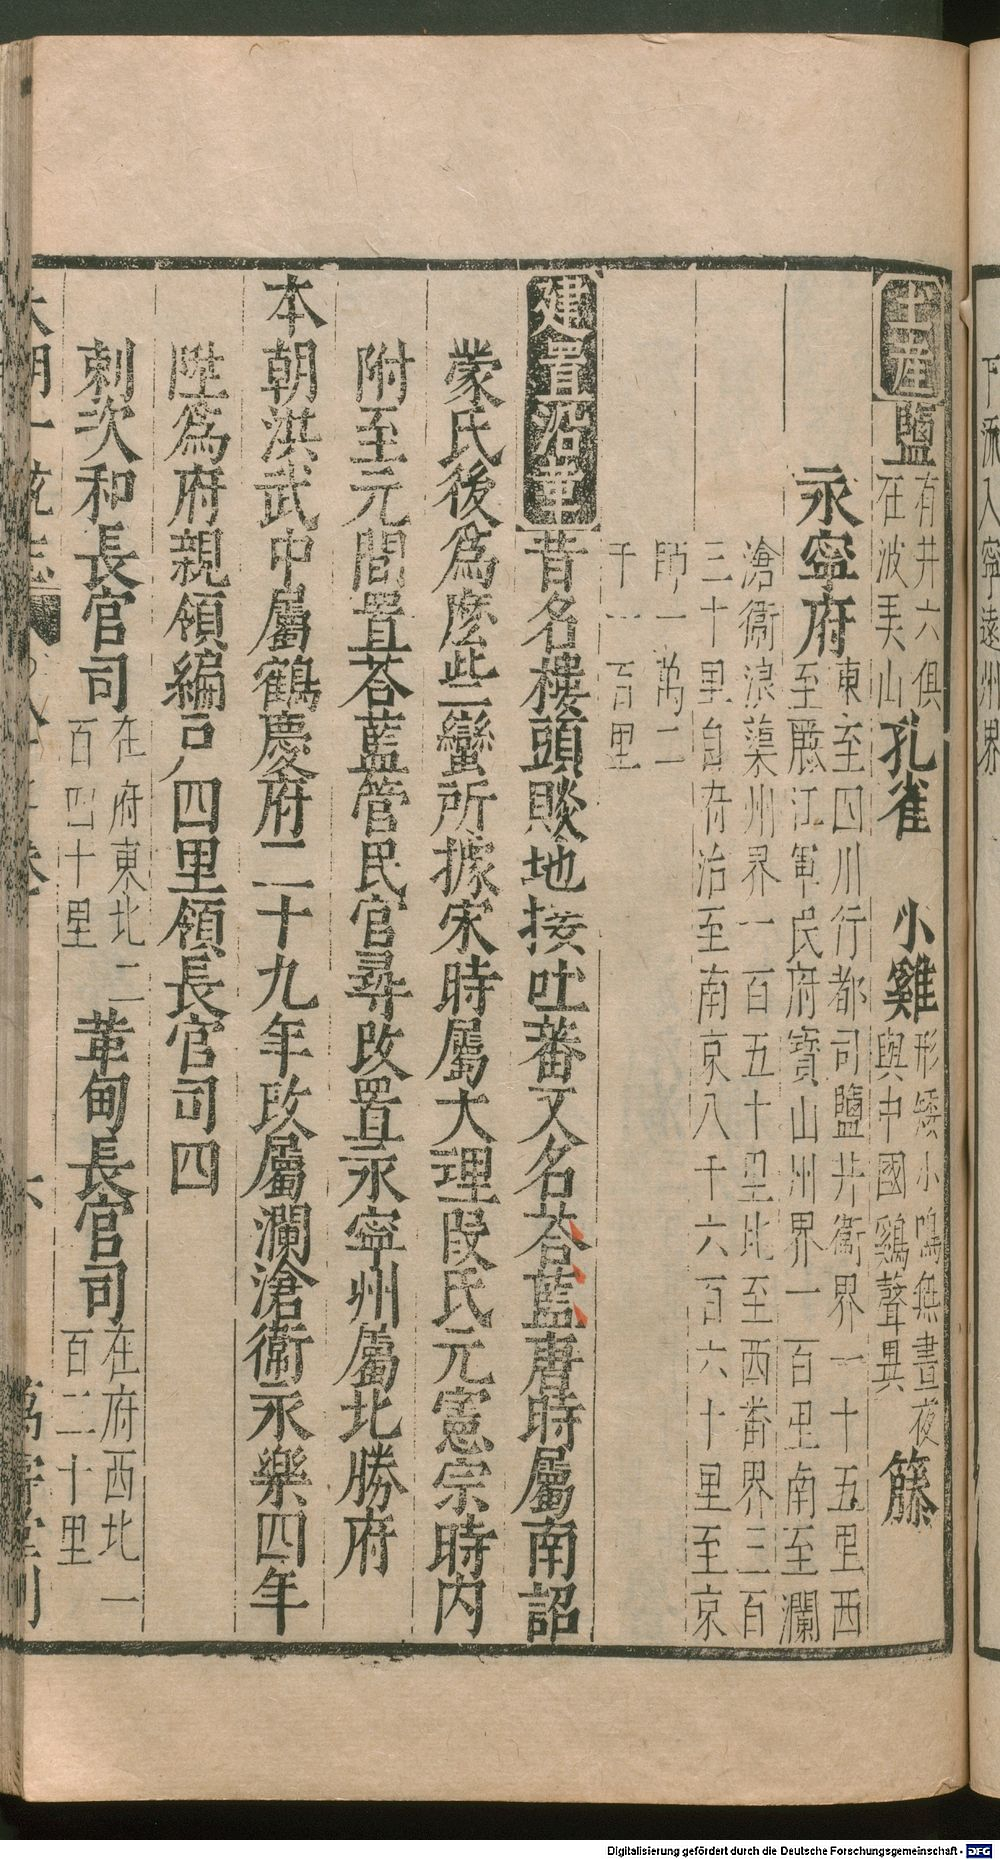 土產鹽有井六俱在波羙山孔雀小雞形矮小鳴無晝夜與中國鷄聲異籐
永寧府東至四川行都司鹽井衞界一十五里西至麗江軍民府寶山州界一百里南至瀾
滄衞浪蕖州界一百五十里北至西畨界三百三十里自府治至南京八千六百六十里至京
師一萬二千一百里
建置沿革昔名樓頭賧地接吐蕃又名荅藍唐時屬南詔
蒙氏後爲麽些蠻所據宋時屬大理段氏元憲宗時内
附至元間置荅藍管民官尋改置永寧州屬北勝府
本朝洪武中屬鶴慶府二十九年改屬瀾滄衞永樂四年
陞爲府親領編戶四里領長官司四
剌次和長官司在府東北二百四十里革甸長官司在府西北一百二十里
下流入寧遠州界
Digitalisierung gefördert durch die Deutsche Forschungsgemeinschaft - DFG